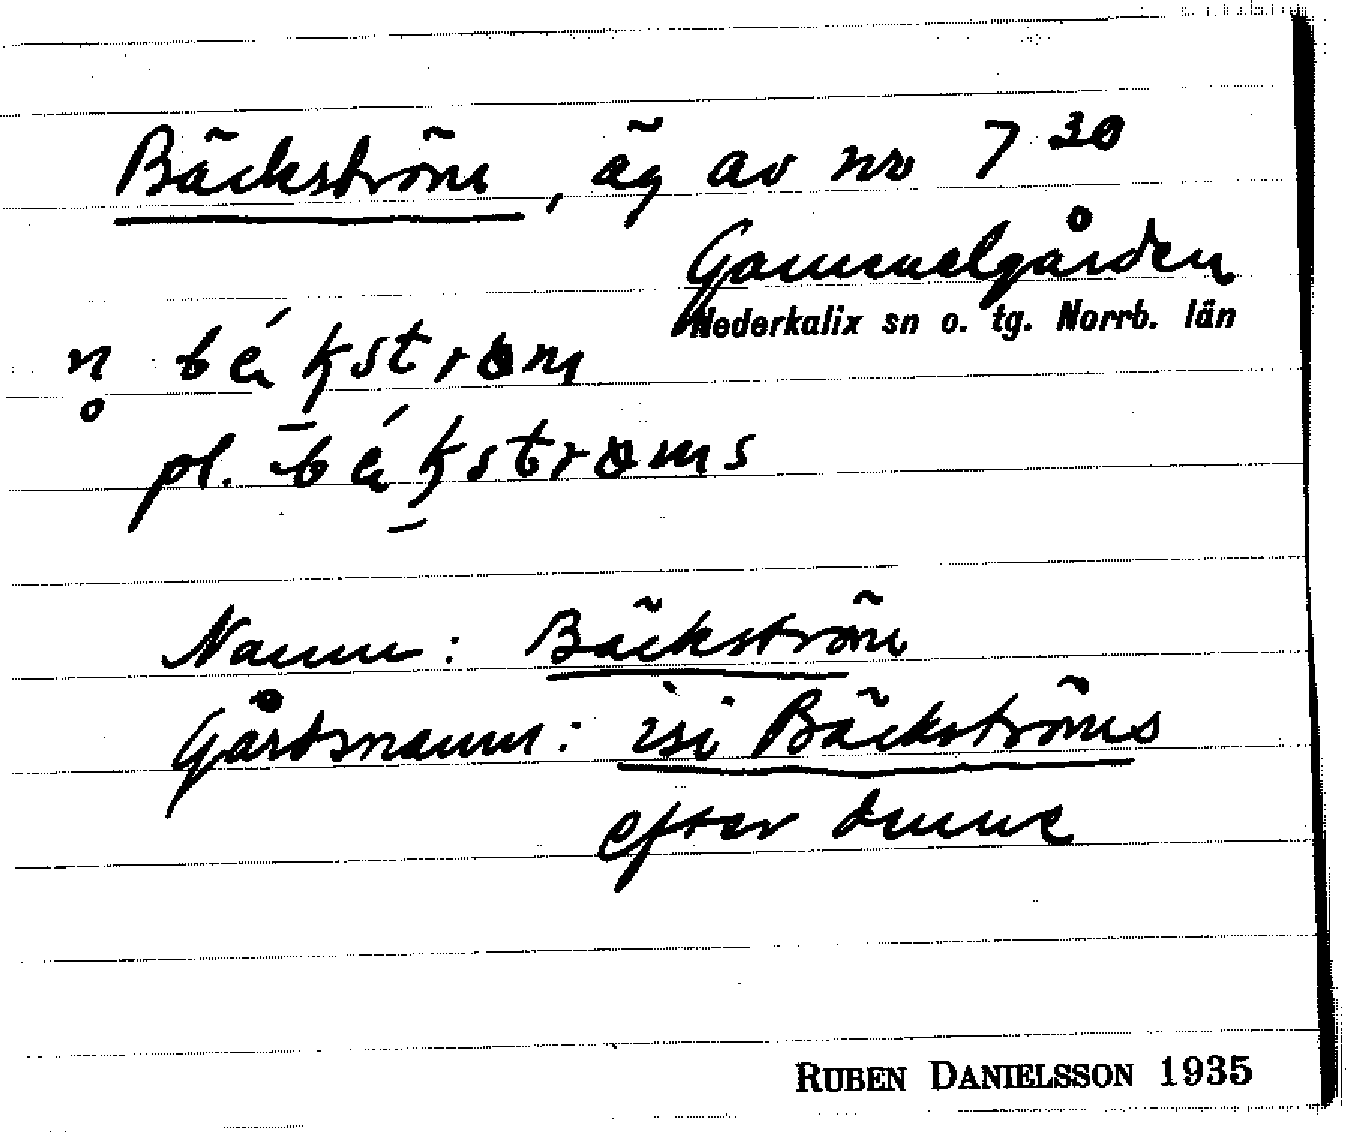 Bäckström, äg av nr 7 30
Gammelgården
Nederkalix sn o. tg. Norrb. län
pl.
Namn: Bäckström
Gårdsnamn: isi Bäckströms
efter denne
RUBEN DANIELSSON 1935